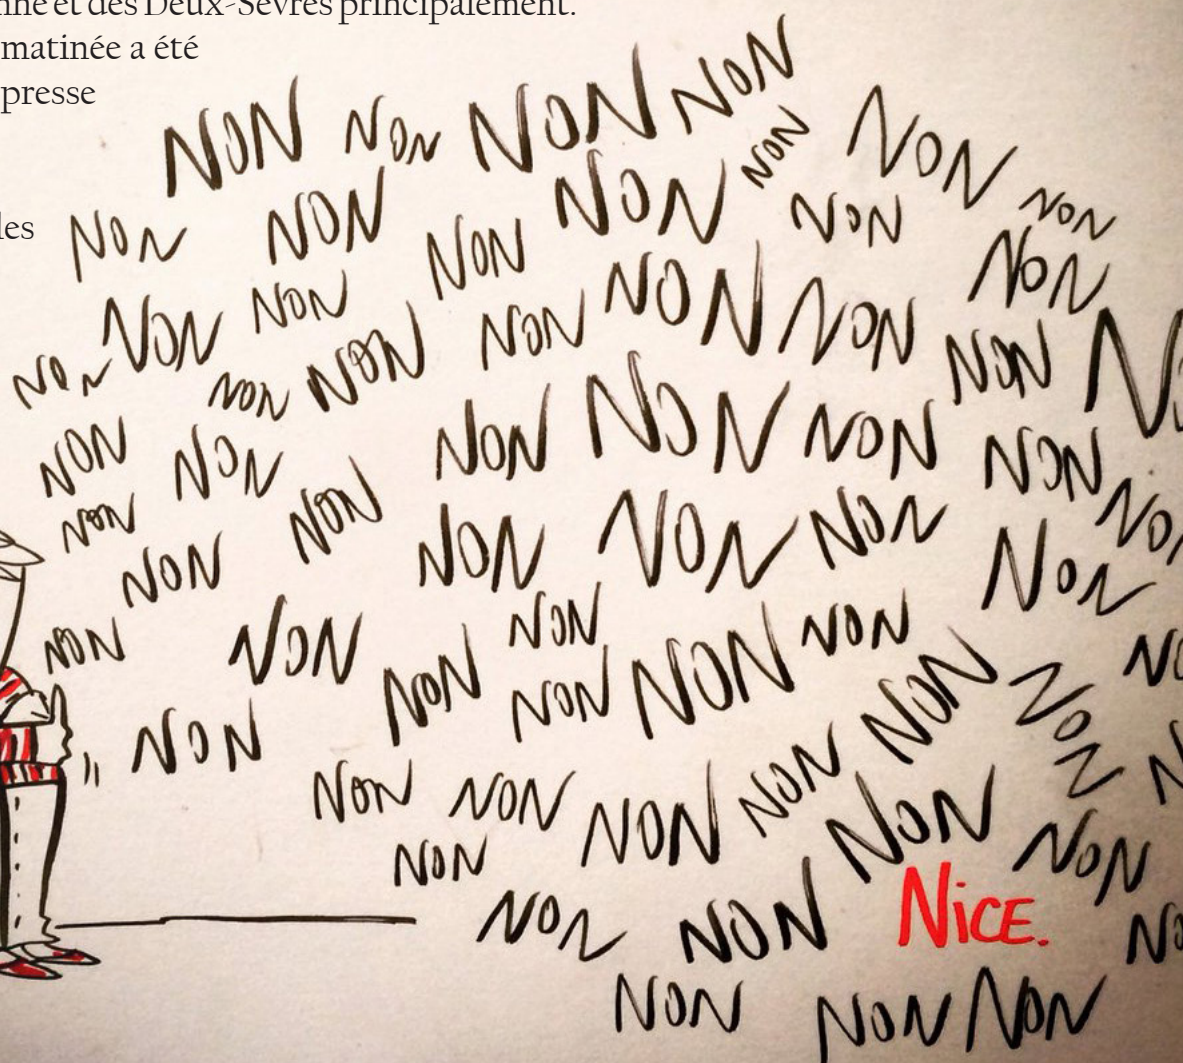 nne et des Deux-Sèvres principalement.
matinée a été
presse
les
NON NON NON NON NON NON NON
NON NON NON NON NON NON
NON NON NON NON NON NON NO
NON NON NON
NON NON NON NON NON NON NO
NON NON NON NON NON NON
NON NON NON
NON NON NON NON NON NON NON NO
NON N
NON NON NON NON NON NON
NON
NON NON NiCE. NO
NON NON NON